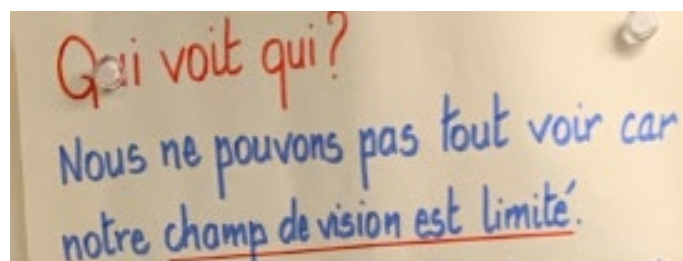 Qui voit qui?
Nous ne pouvons pas tout voir car
notre champ de vision est limité.